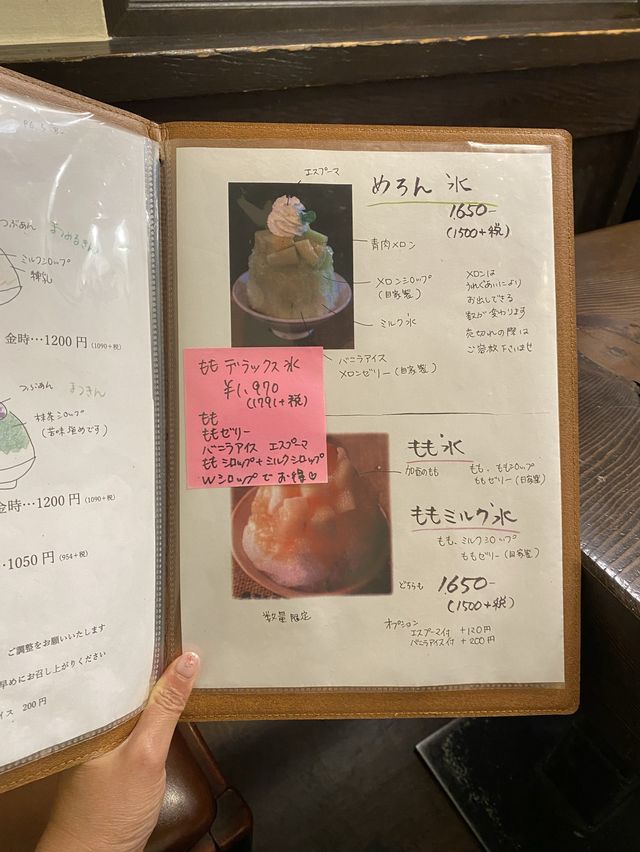 つぶあん
ミルクシロップ
練乳
金時…1200円 (1090+税)
つぶあん
抹茶シロップ
(苦味強めです)
金時…1200円 (1090+税)
…1050円 (954+税)
ご調整をお願いいたします
早めにお召し上がりください
イス 200円
エスプーマ
めろん氷
1650-
(1500+税)
青肉メロン
メロンシロップ
(自家製)
ミルク氷
バニラアイス
メロンゼリー(自家製)
メロンは
うれぐあいにより
お出しできる
数が変わります
売切れの際は
ご容赦下さいませ
もも デラックス 氷
¥1,970
(1791+税)
もも
ももゼリー
バニラアイス エスプーマ
ももシロップ+ミルクシロップ
Wシロップでお得♡
もも氷
もも、ももシロップ
ももゼリー(自家製)
ももミルク氷
もも、ミルクシロップ
ももゼリー(自家製)
どちらも 1650-
(1500+税)
数量限定
オプション
エスプーマ付 +120円
バニラアイス付 +200円